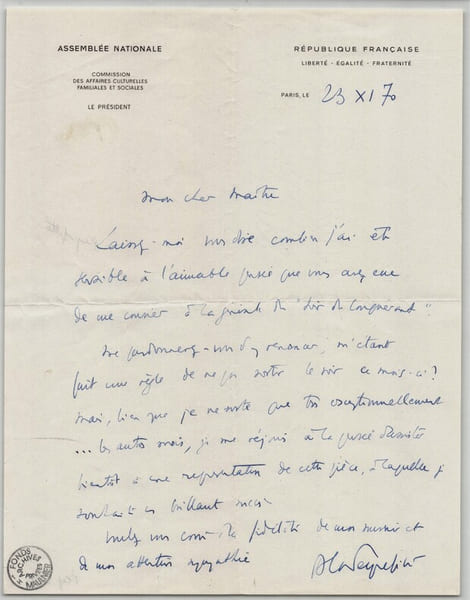 ASSEMBLÉE NATIONALE
COMMISSION
DES AFFAIRES CULTURELLES
FAMILIALES ET SOCIALES
LE PRÉSIDENT
RÉPUBLIQUE FRANÇAISE
LIBERTÉ - ÉGALITÉ - FRATERNITÉ
PARIS, LE 23 XI 70
Mon cher Maître
Laissez-moi vous dire combien j'ai été
sensible à l'aimable pensée que vous avez eue
de me convier à la générale du "Soir du Conquérant".
Me pardonnerez-vous d'y renoncer, m'étant
fait une règle de ne pas sortir le soir ce mois-ci?
Mais, bien que je ne sorte que très exceptionnellement
... les autres mois, je me réjouis à la pensée d'assister
bientôt à une représentation de cette pièce, à laquelle je
souhaite un brillant succès.
Veuillez me croire la fidélité de mon souvenir et
de mon attentive sympathie
FONDS
ARCHIVES
PRIVÉES
MAULNIER